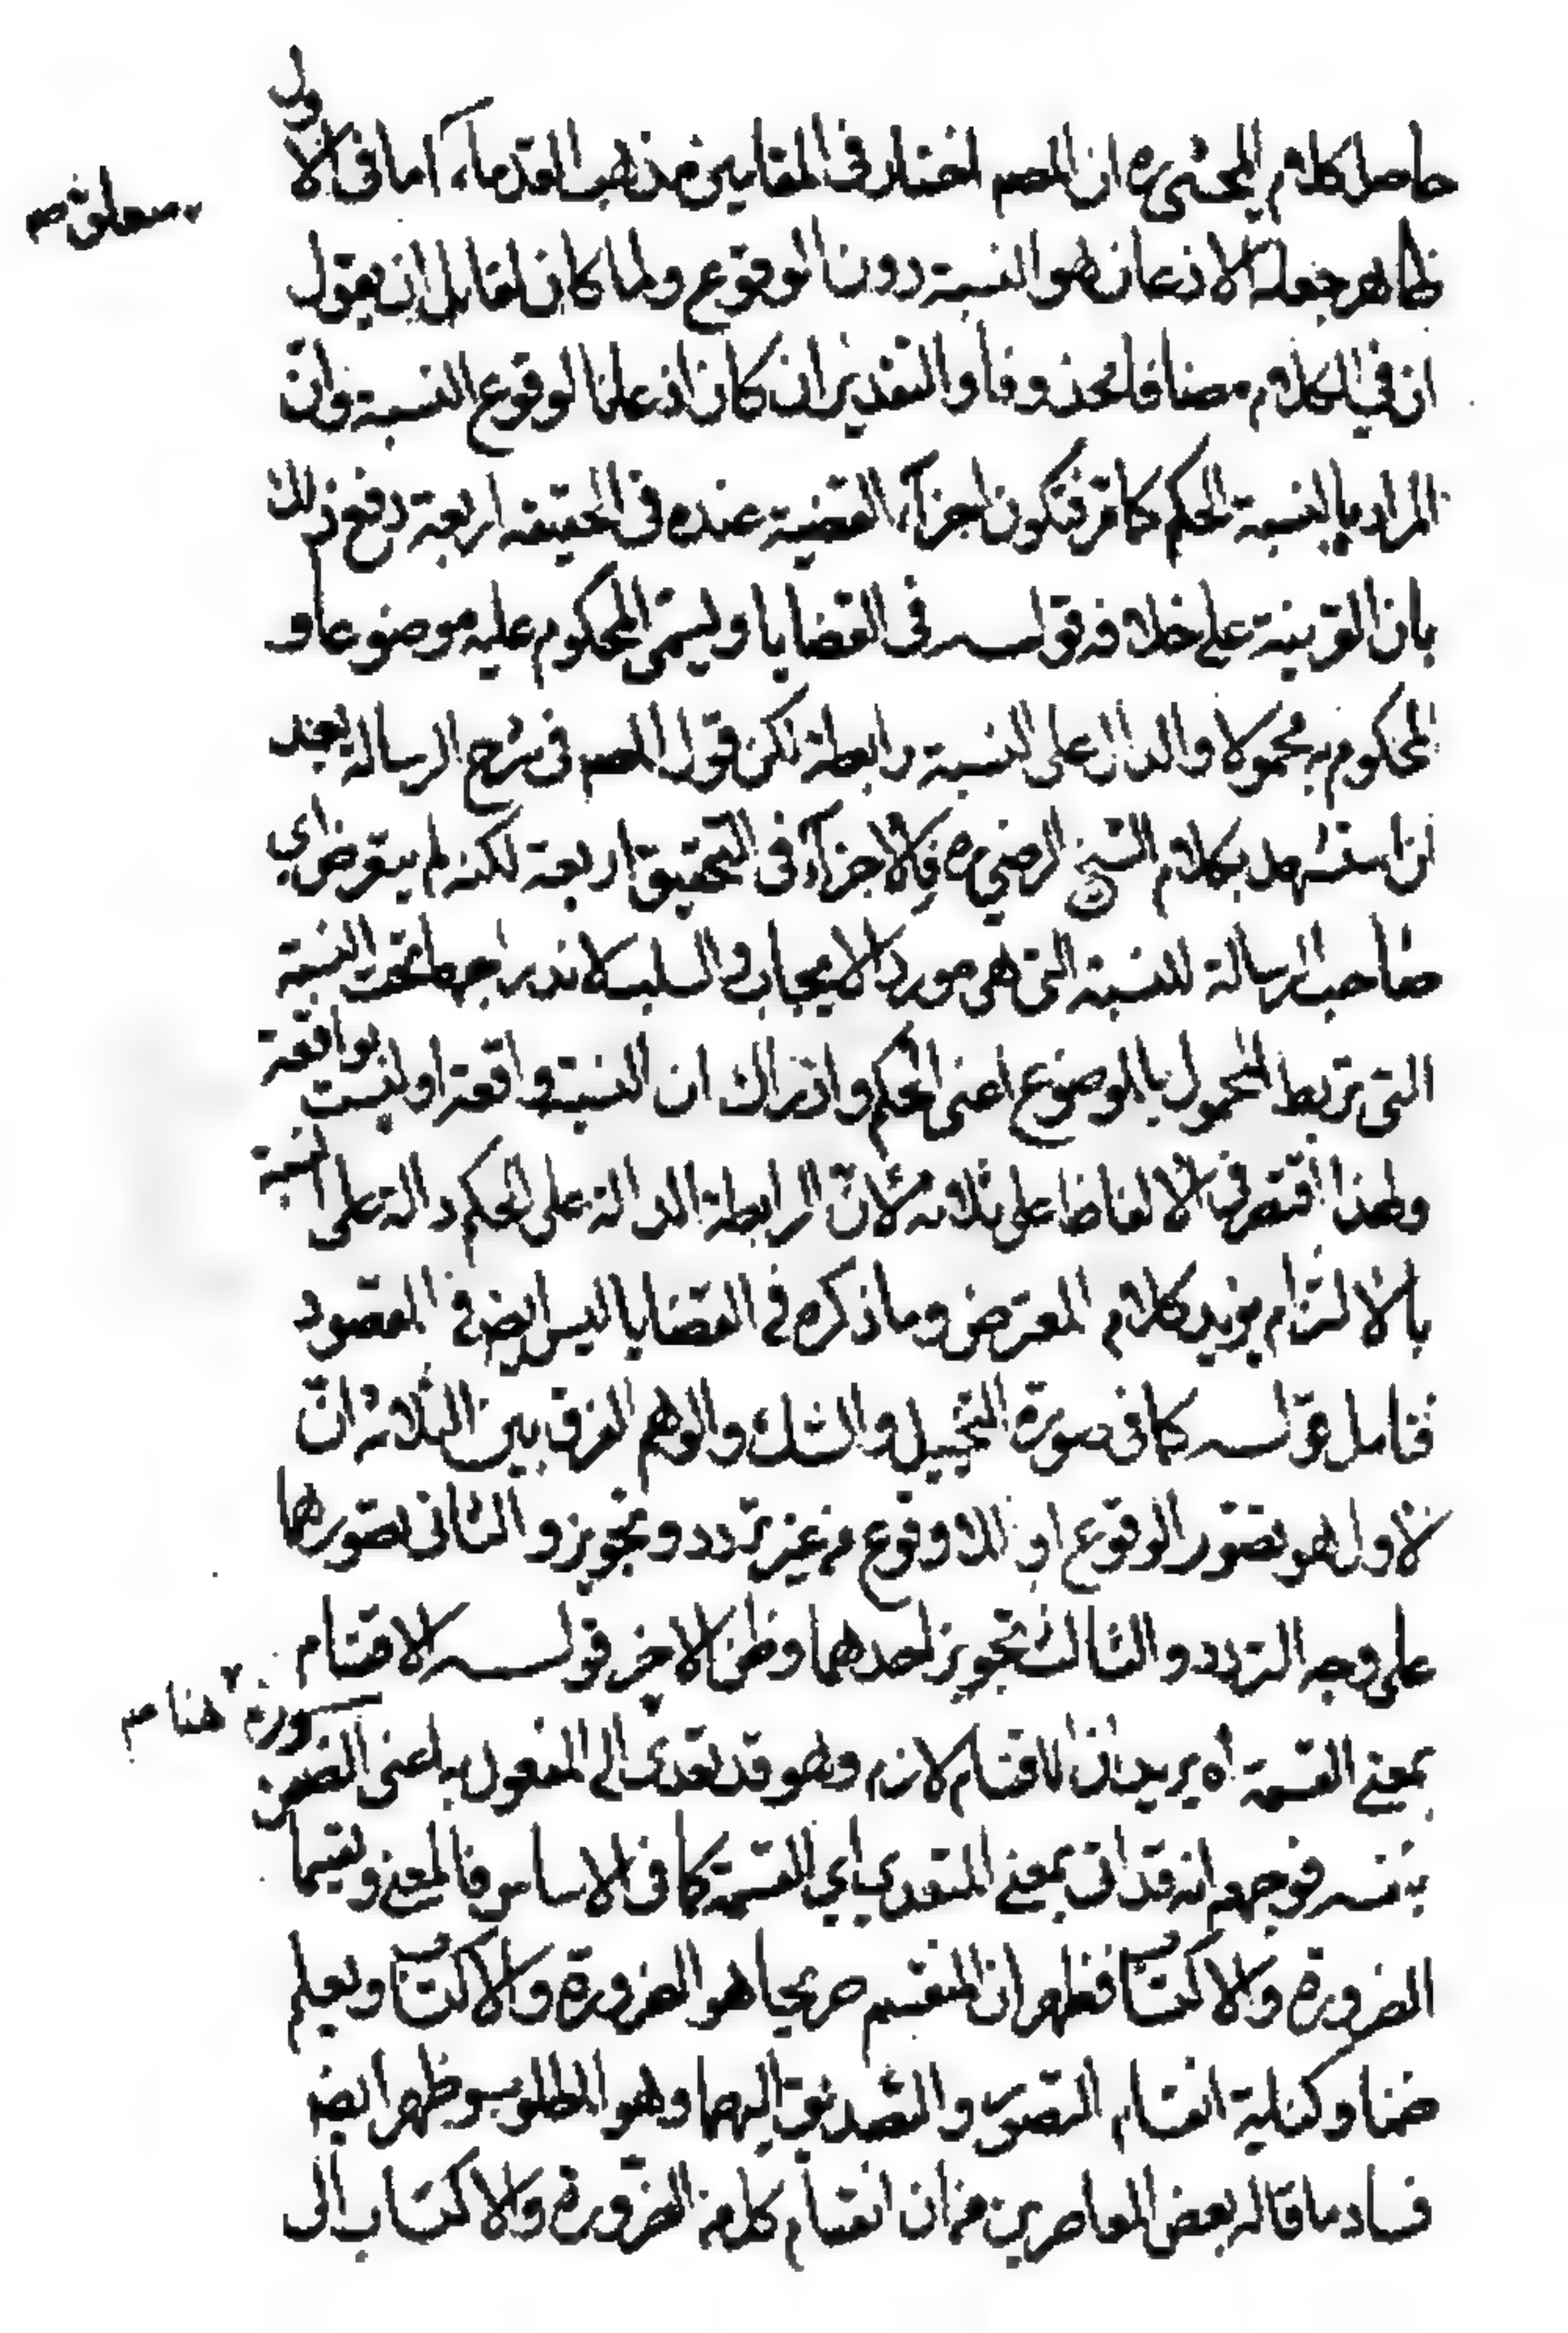 حاصل كلام المحشى ره ان المصم اختار فى المقامين مذهب القدماء اما فى الاول
متعلق مه
ظاهر جعله الاذعان هو النسبة دون الوقوع ولما كان لقائل ان يقول
ان في الكلام مضافا محذوفا والتقدير ان كان اذعانا لوقوع النسبة وانّ
المراد بالنسبة الحكم كما مرّ فتكون اجزآء القضية عنده فى الحقيقه اربعة دفع ذلك
بان القرينة على خلافه قولـه فى القضايا ويسمّى المحكوم عليه موضوعا و
المحكوم به محمولا والدال على النسبة رابطة لكن قول المصم فى شرح الرسالة بعد
ان استشهد بكلام الشيخ الرضي ره فالاجزآء فى التحقيق اربعة لكنه لم يتعرض اي
صاحب الرسالة للنسبة التى هى مورد الايجاب والسلب لاندراجها تحت النسبة
التى تربط المحمول بالموضوع اعنى الحكم وادراك ان النسبة واقعة او ليست بواقعة
ولهذا اقتصر فى الالفاظ على ثلاثه لانّ الرابطة الدالة على الحكم دالة على النسبة
بالالتزام يؤيد كلام المعترض وما ذكره في القضايا ليس ايض في المقصود
فتامل قولـه كما فى صورة التخييل والشك والوهم الفرق بين الثلاثه انّ
الاول هو تصوّر الوقوع او اللاوقوع من غير تردد وتجويز والثانى تصورهما
على وجه التردد والثالث تجويز احدهما وظن الاخر قولـه الاقتسام
هنا مه
بمعنى القسمة اه يريد ان الاقتسام لازم وهو قد تعدى الى المفعول به اعنى الضرورة
بنفسه فوجهه انه قد اتى بمعنى المتعدي اي القسمة كما فى الاساس فالمعنى ويقتسما
الضرورة والاكتساب فظهر ان المنقسم صريحا هو الضرورة والاكتساب ويعلم
ضمنا وكناية انقسام التصور والتصديق اليهما وهو المطلوب وظهر ايض
فساد ما قاله بعض المعاصرين من ان انقسام كل من الضرورة والاكتساب الى